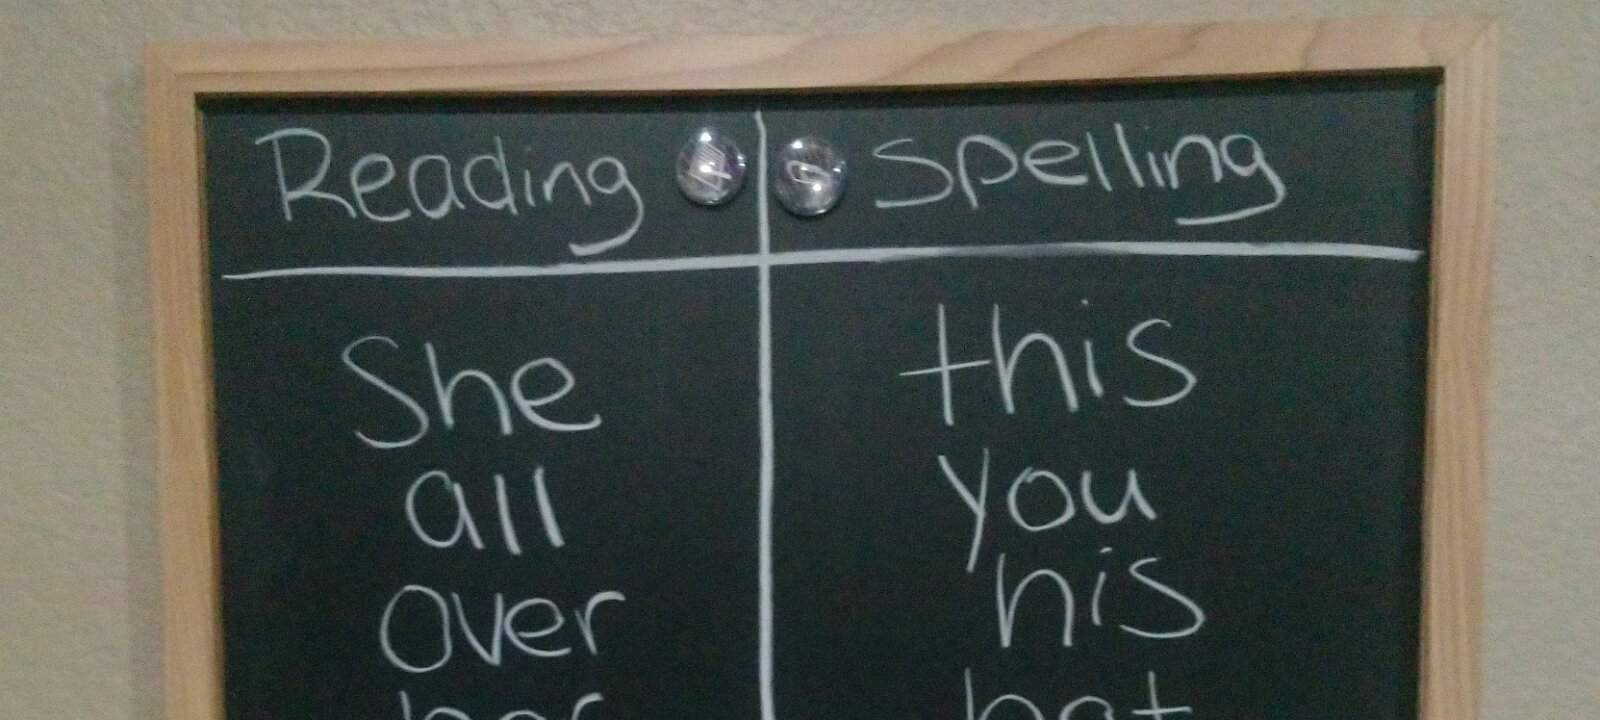 Reading
Spelling
She
this
all
you
over
his